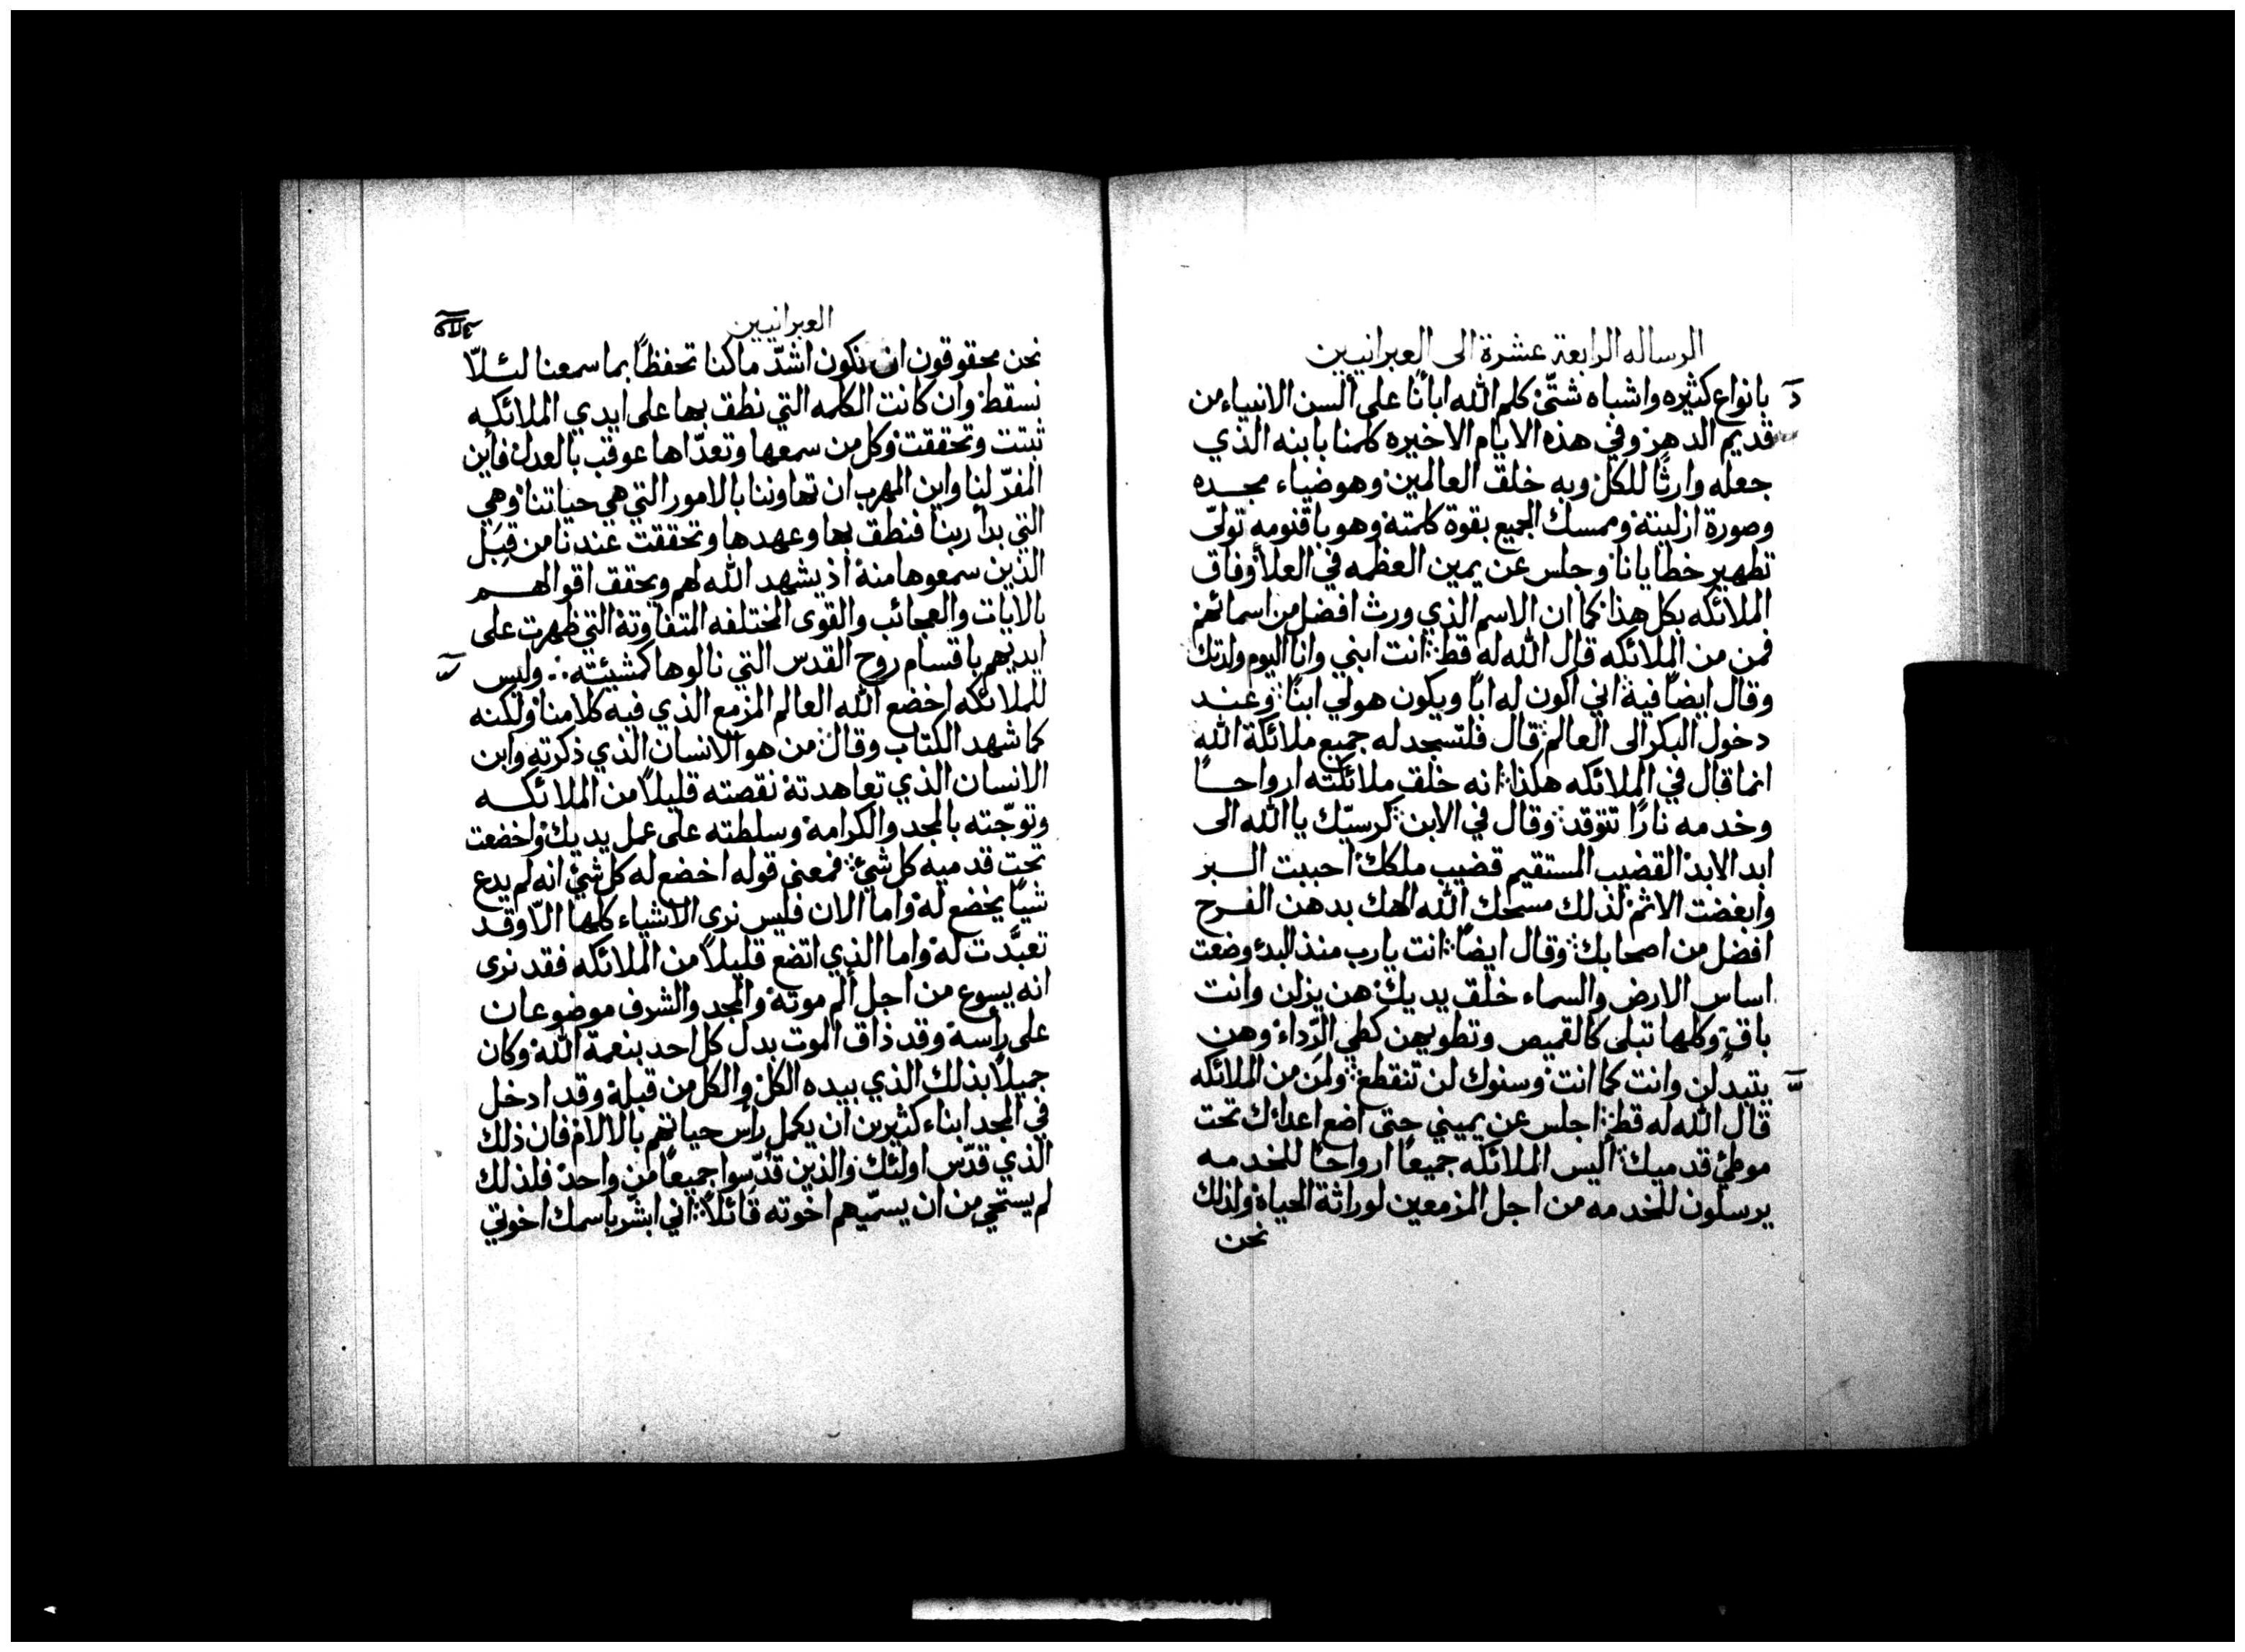 الرساله الرابعة عشرة الى العبرانيين
بانواع كثيره واشباه شتّى كلم الله ابانا على ألسن الانبياء من
قديم الدهر وفي هذه الايام الاخيره كلمنا بابنه الذي
جعله وارثًا للكل وبه خلق العالمين وهو ضياء مجده
وصورة ازليته وممسك الجميع بقوة كلمته وهو باقنومه تولّى
تطهير خطايانا وجلس عن يمين العظمه في العلا وفاق
الملائكه بكل هذا كما ان الاسم الذي ورث افضل من اسمائهم
فمن من الملائكه قال الله له قط انت ابني وانا اليوم ولدتك
وقال ايضًا فيه اني اكون له ابًا ويكون هو لي ابنًا وعند
دخول البكر الى العالم قال فلتسجد له جميع ملائكة الله
انما قال في الملائكه هكذا انه خلق ملائكته ارواحًا
وخدمه نارًا تتوقد وقال في الابن كرسيّك يا الله الى
ابد الابد القضيب المستقيم قضيب ملكك احببت البر
وابغضت الاثم لذلك مسحك الله الهك بدهن الفرح
افضل من اصحابك وقال ايضًا انت يارب منذ البدئ وضعت
اساس الارض والسماء خلق يديك هن يزلن وانت
باق وكلها تبلى كالقميص وتطويهن كطي الرّداء وهن
يتبدلن وانت كما انت وسنوك لن تنقطع ولمن من الملائكه
قال الله له قط اجلس عن يميني حتى اضع اعداك تحت
موطئ قدميك أليس الملائكه جميعًا ارواحًا للخدمه
يرسلون للخدمه من اجل المزمعين لوراثة الحياة ولذلك
نحن
العبرانيين
نحن محقوقون ان نكون اشدّ ما كنا تحفظًا بما سمعنا لئلّا
نسقط وان كانت الكلمه التي نطق بها على ايدي الملائكه
ثبتت وتحققت وكل من سمعها وتعدّاها عوقب بالعدل فاين
المفرّ لنا واين المهرب ان تهاوننا بالامور التي هي حياتنا وهي
التي بدأ ربنا فنطق بها وعهدها وتحققت عندنا من قِبَل
الذين سمعوها منه اذ يشهد الله لهم ويحقق اقوالهم
بالايات والعجائب والقوى المختلفه المتفاوتة التي ظهرت على
ايديهم باقسام روح القدس التي نالوها كمشيئته وليس
للملائكه اخضع الله العالم المزمع الذي فيه كلامنا ولكنه
كما شهد الكتاب وقال من هو الانسان الذي ذكرته وابن
الانسان الذي تعاهدته نقصته قليلًا من الملائكه
وتوّجته بالمجد والكرامه وسلطته على عمل يديك واخضعت
تحت قدميه كل شئ فمعنى قوله اخضع له كل شئ انه لم يدع
شيًا يخضع له واما الان فليس نرى الاشياء كلها الّا وقد
تعبَّدت له واما الذي اتضع قليلًا من الملائكه فقد نرى
انه يسوع من اجل ألم موته والمجد والشرف موضوعان
على رأسه وقد ذاق الموت بدل كل احد بنعمة الله وكان
جميلًا بذلك الذي بيده الكل والكل من قبله وقد ادخل
في المجد ابناء كثيرين ان يكمل رأس حياتهم بالالام فان ذلك
الذي قدّس اولئك والذين قدّسوا جميعًا من واحد فلذلك
لم يستحي من ان يسمّيهم اخوته قائلًا اني ابشر باسمك اخوتي